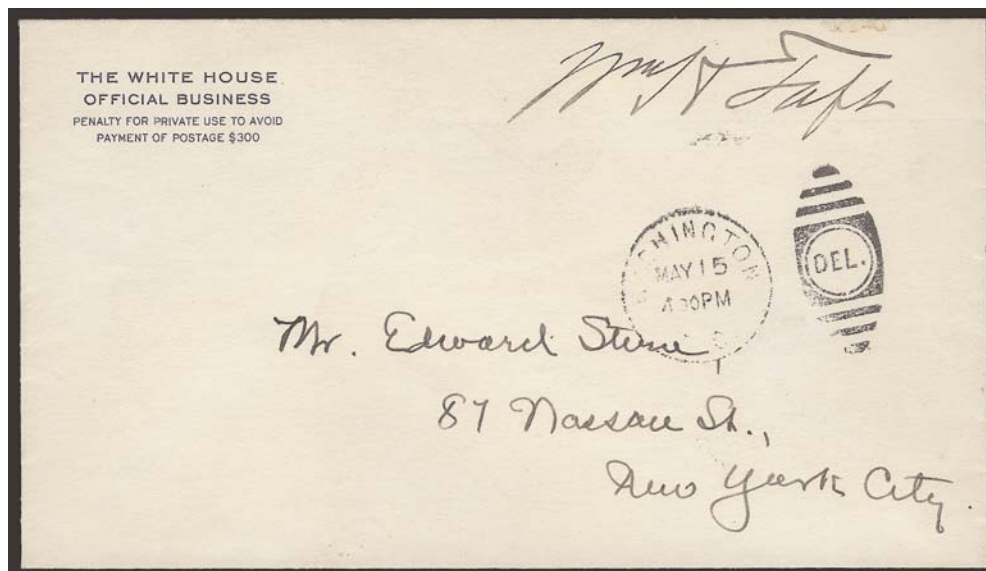 THE WHITE HOUSE
OFFICIAL BUSINESS
PENALTY FOR PRIVATE USE TO AVOID
PAYMENT OF POSTAGE $300
Wm H Taft
WASHINGTON
MAY 15
4 30PM
DEL.
Mr. Edward Stern,
87 Nassau St.,
New York City.